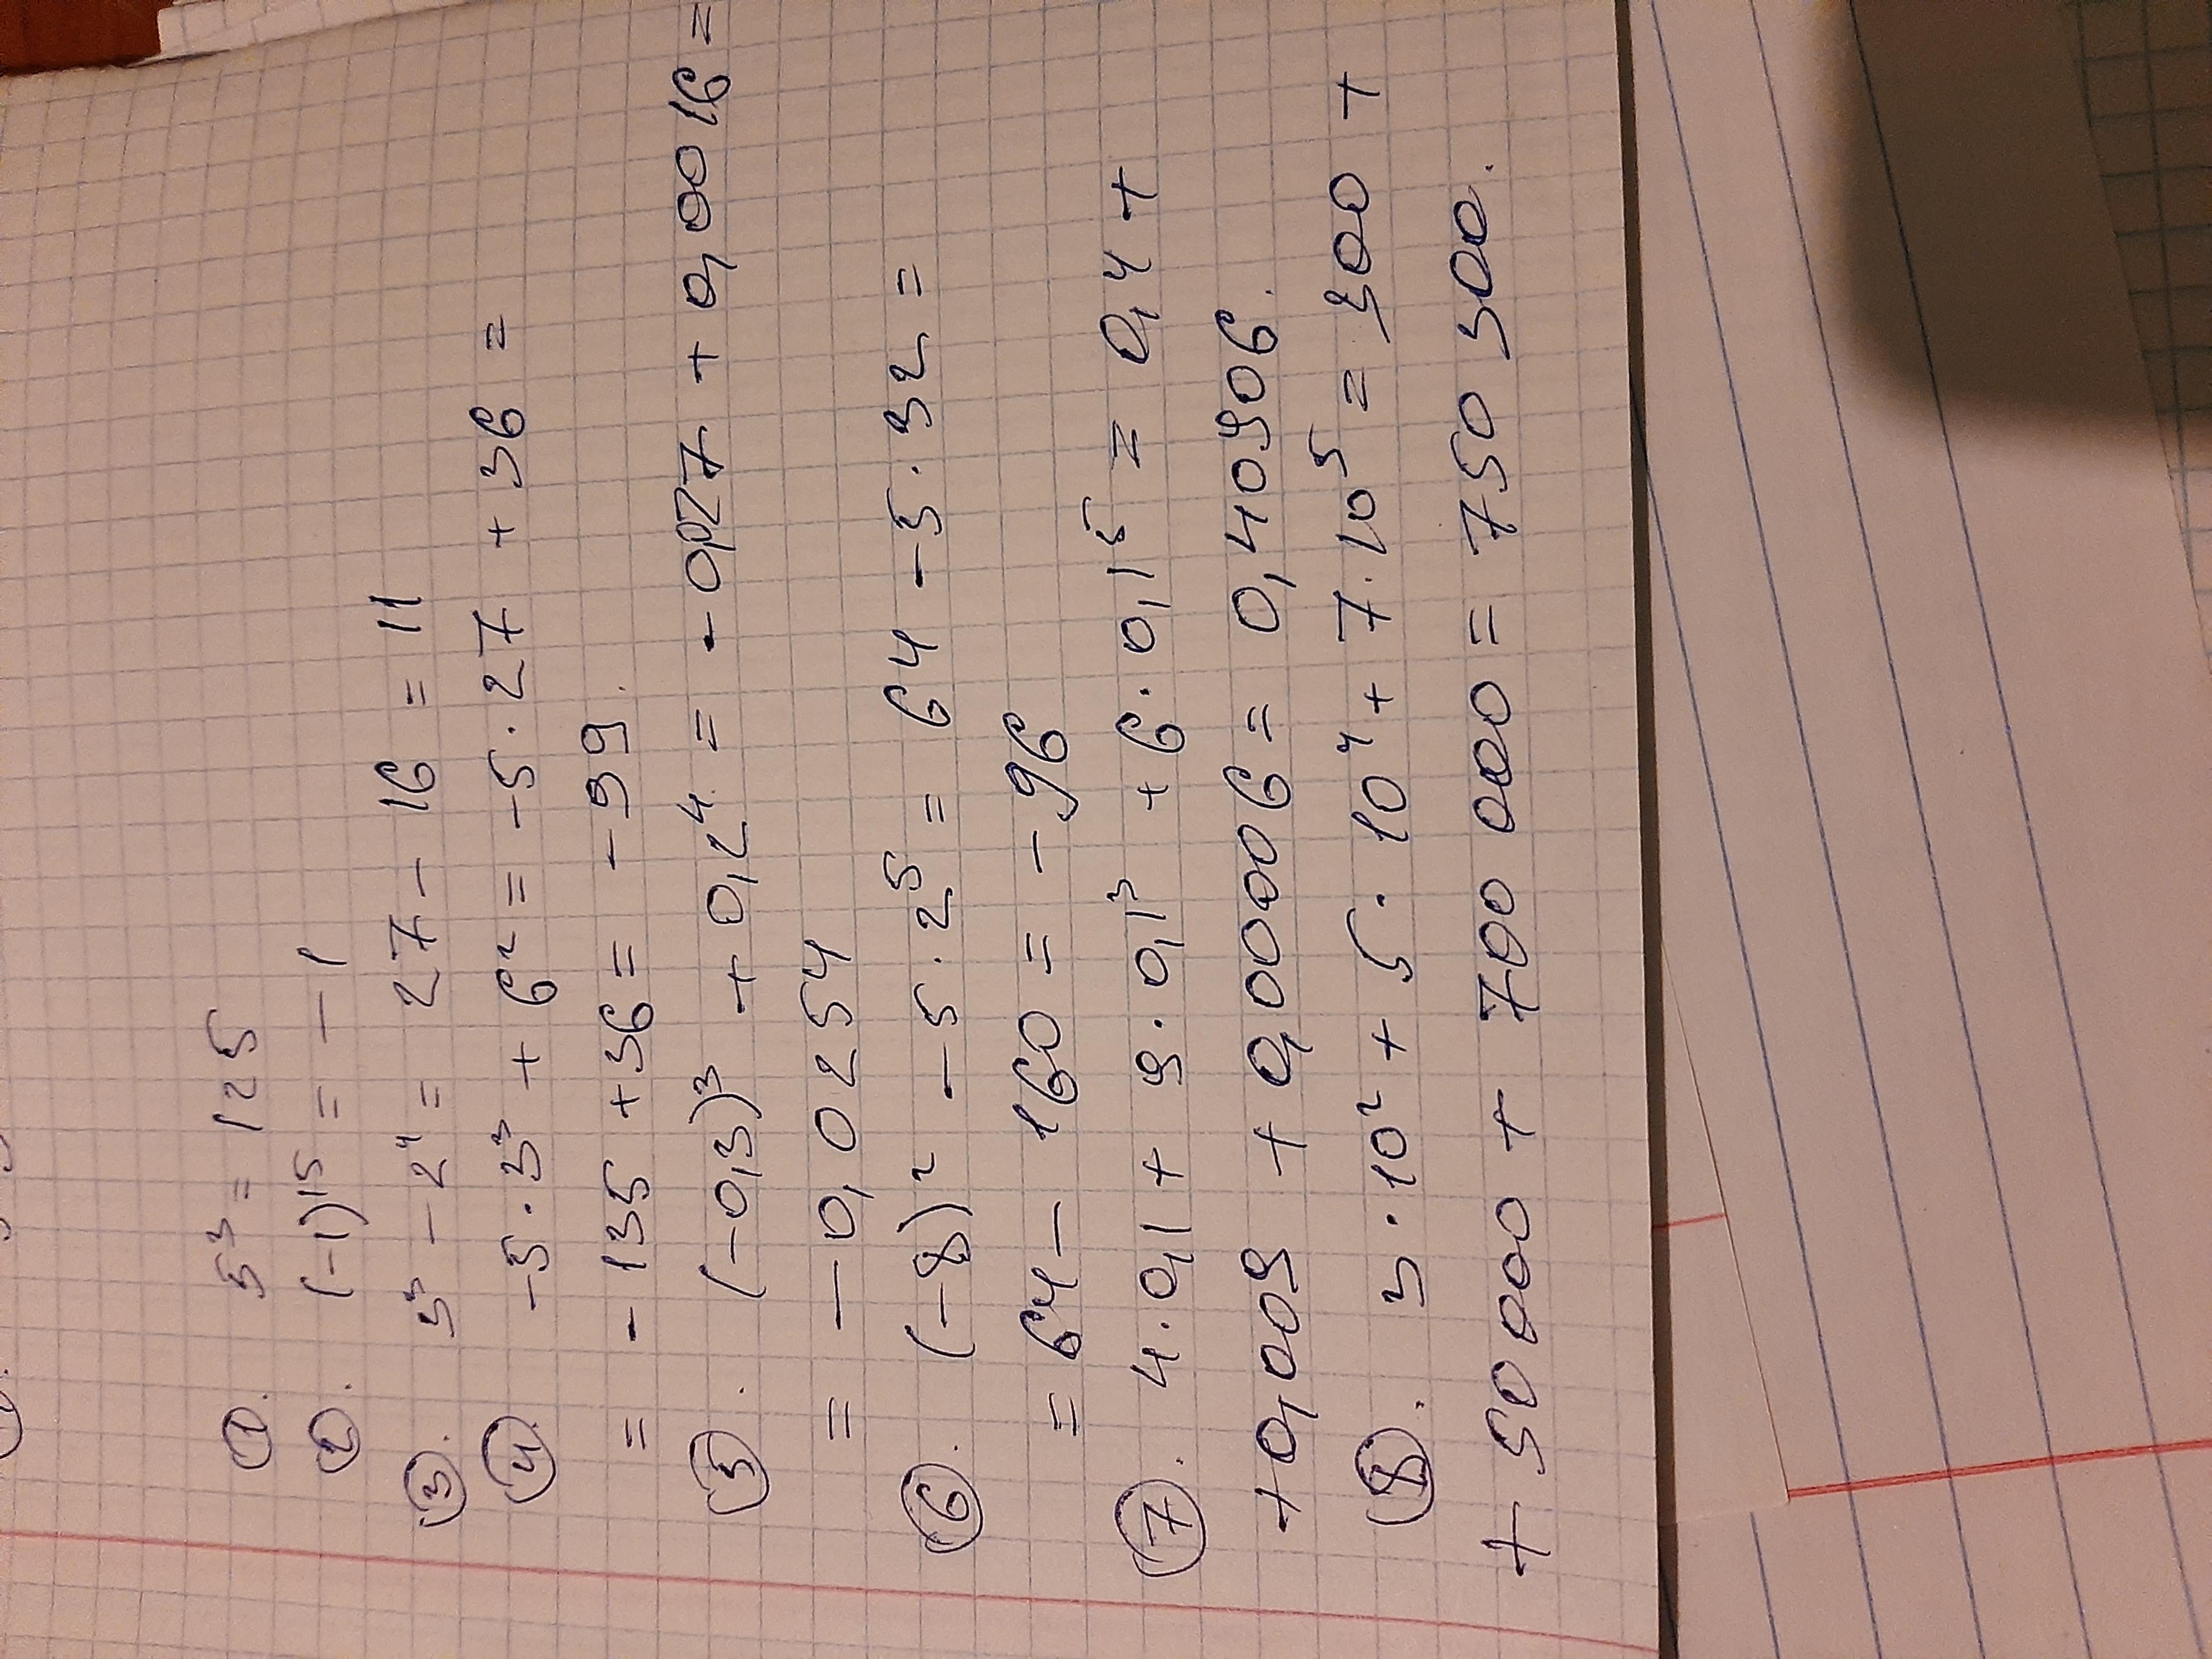 ①. 5³ = 125
②. (-1)¹⁵ = -1
③. 3³ - 2⁴ = 27 - 16 = 11
④. -5 · 3³ + 6² = -5 · 27 + 36 =
= -135 + 36 = -99.
⑤. (-0,3)³ + 0,2⁴ = -0,027 + 0,0016 =
= -0,0254
⑥. (-8)² - 5 · 2⁵ = 64 - 5 · 32 =
= 64 - 160 = -96
⑦. 4 · 0,1 + 9 · 0,1³ + 6 · 0,1⁵ = 0,4 +
+ 0,009 + 0,00006 = 0,40906.
⑧. 3 · 10² + 5 · 10⁴ + 7 · 10⁵ = 300 +
+ 50 000 + 700 000 = 750 300.